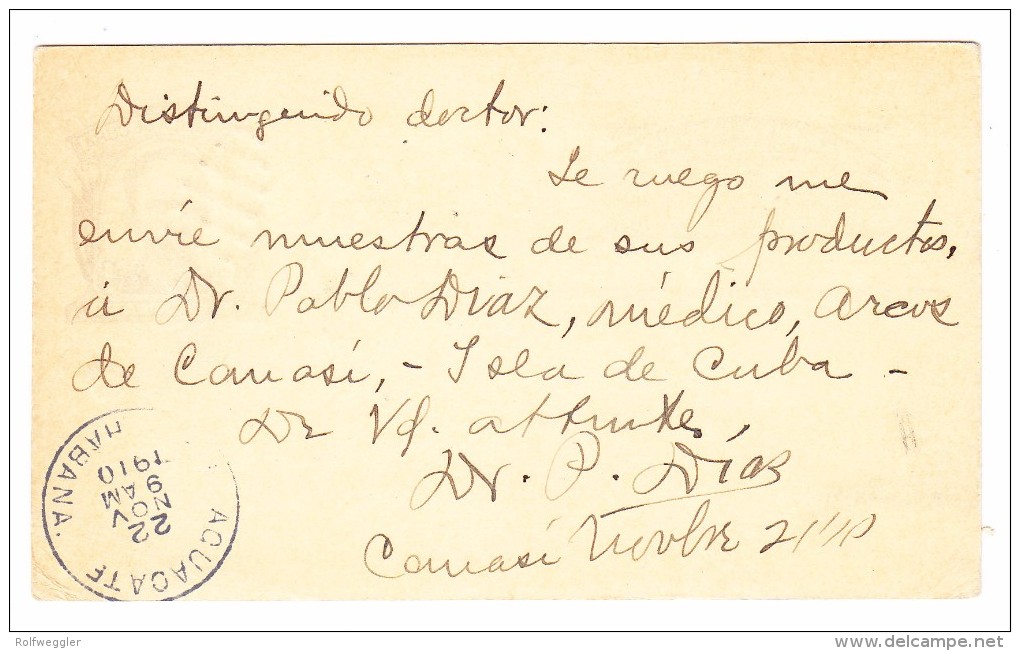 Distinguido doctor:
Le ruego me
envíe muestras de sus productos,
á Dr. Pablo Diaz, médico, Arcos
de Canasí, - Isla de Cuba -
De Vd. atten
Dr. P. Díaz
Canasí Novbre 21/10
AGUACATE HABANA.
22
NOV
9 AM
1910
Rolfweggler
www.delcampe.net